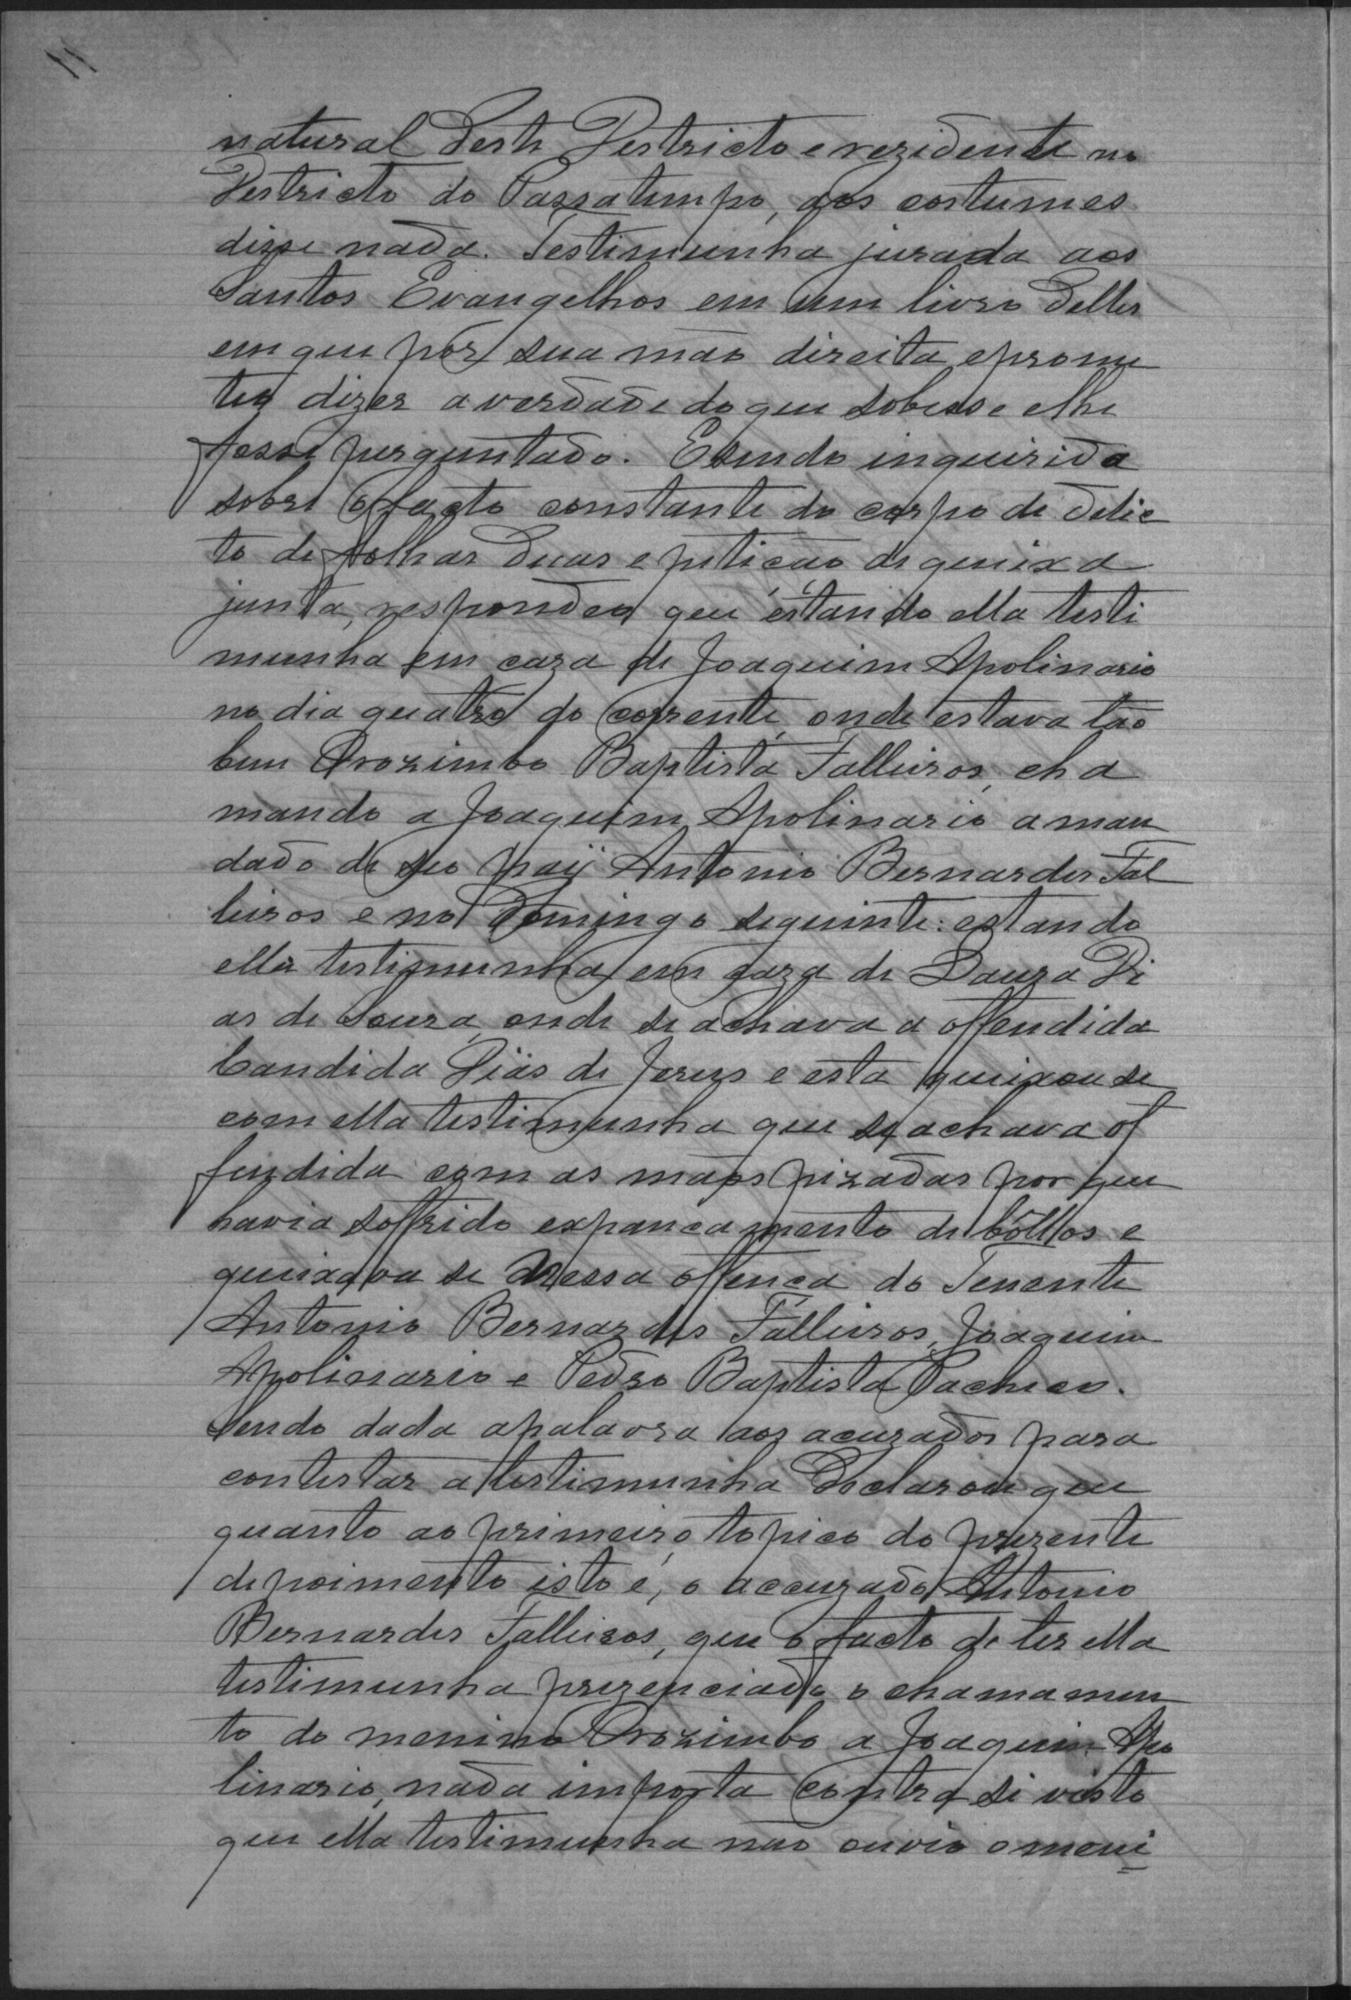 11
natural deste Destricto e rezidente no
Destricto do Passatempo, aos costumes
disse nada. Testimunha jurada aos
Santos Evangelhos em um livro delles
em que pôz sua mão direita e prome
teo dizer a verdade do que sobesse e lhe
fosse perguntado. E sendo inquirida
sobre o facto constante do corpo de delic
to de folhas duas e petição de queixa
junta, respondeo que estando ella testi
munha em caza de Joaquim Apolinario
no dia quatro do corrente, onde estava tão
bem Orozimbo Baptista Falleiros, cha
mando a Joaquim Apolinario a man
dado de seo pay Antonio Bernardes Fal
leiros e no Domingo seguinte: estando
ella testimunha em caza de Lauza Di
as de Souza, onde se achava a offendida
Candida Dias de Jezus e esta queixou se
com ella testimunha que se achava of
fendida com as mãos pizadas por que
havia soffrido expancamento de bôllos e
queixava se dessa offença do Tenente
Antonio Bernardes Falleiros, Joaquim
Apolinario e Pedro Baptista Pacheco.
Sendo dada a palavra aos acuzados para
contestar a testimunha declarou que
quanto ao primeiro topico do prezente
depoimento isto é, o accuzado Antonio
Bernardes Falleiros, que o facto de ter ella
testimunha prezenciado o chamamen
to do menino Orozimbo a Joaquim Apo
linario, nada importa contra si visto
que ella testimunha não ouvio o meni